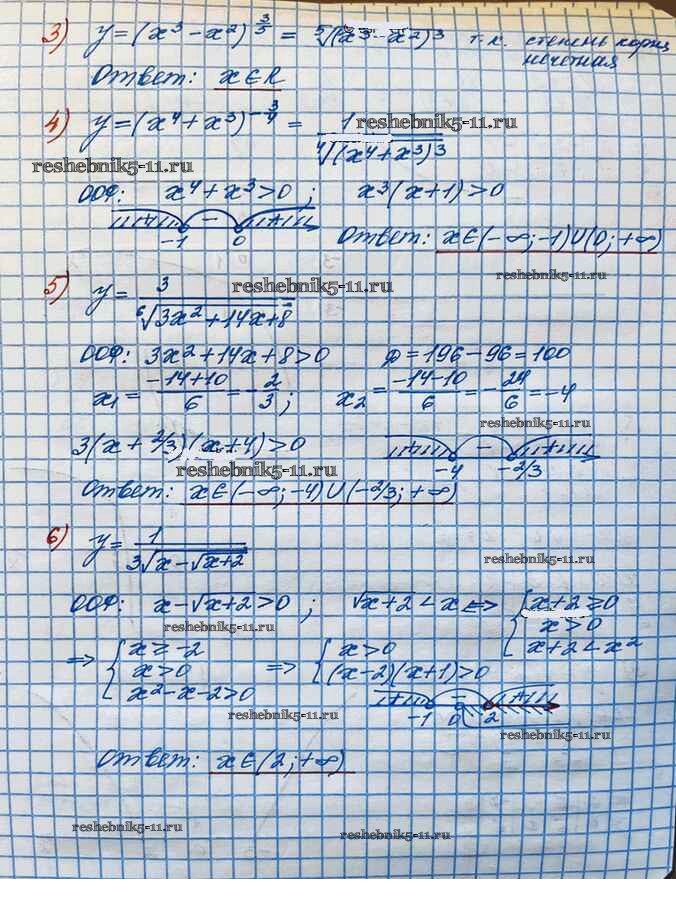 3) y=(x³-x²)^(3/5) = ⁵√(x³-x²)³ т.к. степень корня
нечетная
Ответ: x∈R
4) y=(x⁴+x³)^(-3/4) = 1/⁴√(x⁴+x³)³
reshebnik5-11.ru
reshebnik5-11.ru
ООФ: x⁴+x³>0; x³(x+1)>0
+ - +
-1 0
Ответ: x∈(-∞;-1)∪(0;+∞)
5) y= 3/⁶√3x²+14x+8
reshebnik5-11.ru
ООФ: 3x²+14x+8>0 D=196-96=100
x₁= (-14+10)/6 = -2/3; x₂= (-14-10)/6 = -24/6 = -4
reshebnik5-11.ru
3(x+2/3)(x+4)>0
+ - +
-4 -2/3
reshebnik5-11.ru
Ответ: x∈(-∞;-4)∪(-2/3;+∞)
6) y= 1/3√x-√x+2
reshebnik5-11.ru
ООФ: x-√x+2>0; √x+2<x <=> { x+2≥0
x>0
x+2<x²
reshebnik5-11.ru
=> { x≥-2
x>0
x²-x-2>0
=> { x>0
(x-2)(x+1)>0
+ - +
-1 0 2
reshebnik5-11.ru
reshebnik5-11.ru
Ответ: x∈(2;+∞)
reshebnik5-11.ru
reshebnik5-11.ru